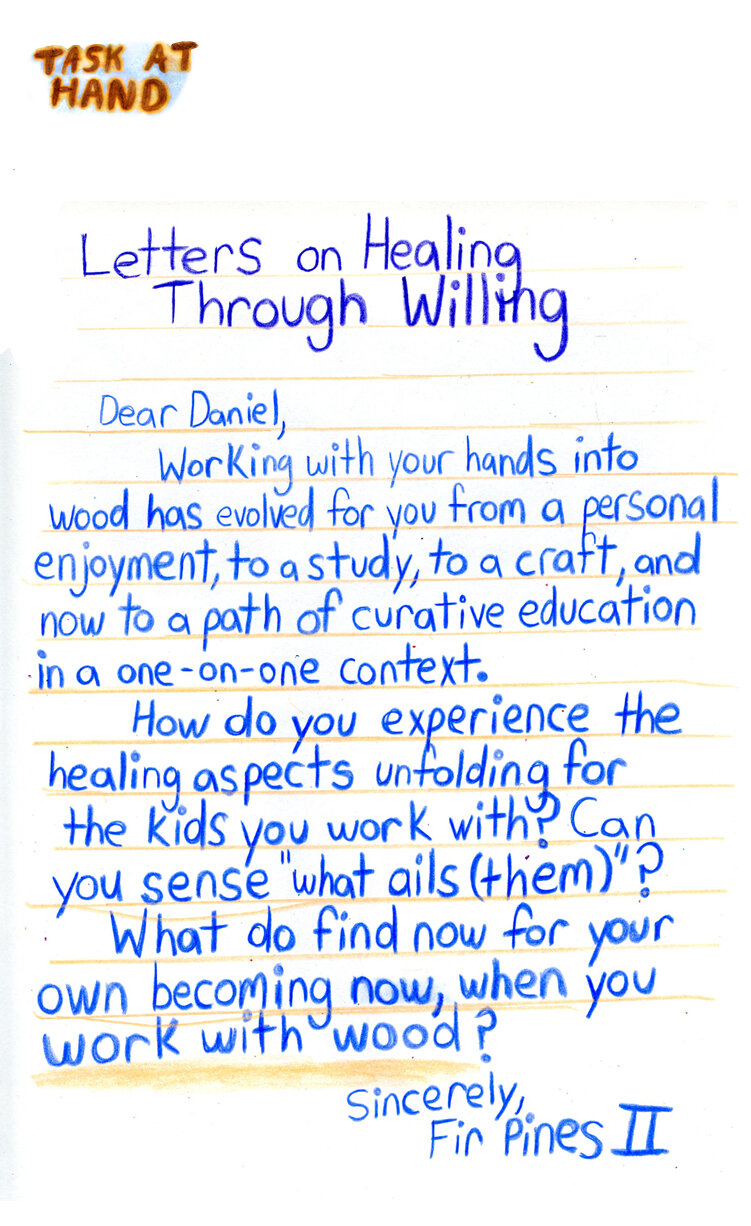 TASK AT
HAND
Letters on Healing
Through Willing
Dear Daniel,
Working with your hands into
wood has evolved for you from a personal
enjoyment, to a study, to a craft, and
now to a path of curative education
in a one-on-one context.
How do you experience the
healing aspects unfolding for
the kids you work with? Can
you sense "what ails (them)"?
What do find now for your
own becoming now, when you
work with wood?
Sincerely,
Fir Pines II